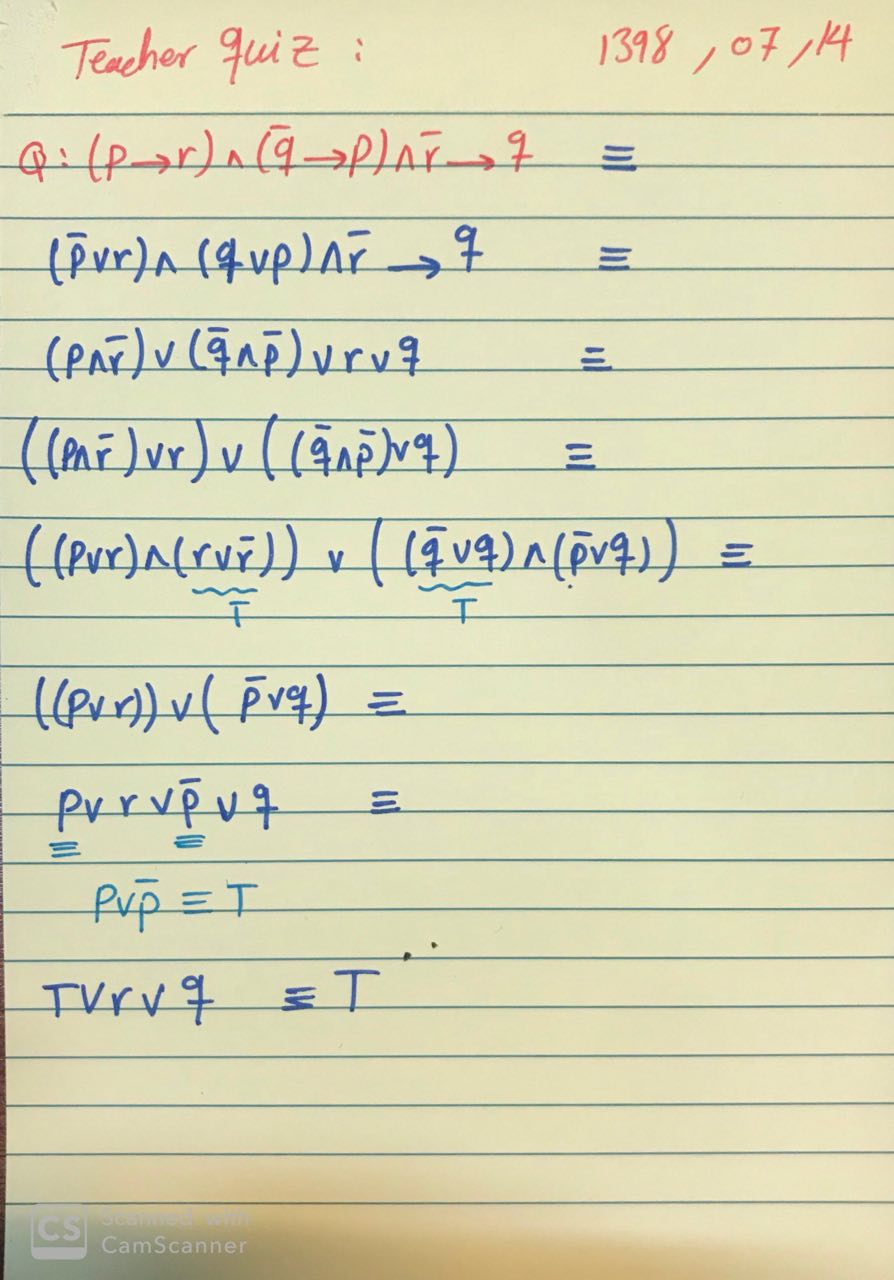 Teacher quiz : 1398 , 07 , 14
Q : (p→r)∧(q̄→p)∧r̄→q ≡
(p̄∨r)∧(q∨p)∧r̄→q ≡
(p∧r̄)∨(q̄∧p̄)∨r∨q ≡
((p∧r̄)∨r)∨((q̄∧p̄)∨q) ≡
((p∨r)∧(r∨r̄))∨((q̄∨q)∧(p̄∨q)) ≡
T T
((p∨r))∨(p̄∨q) ≡
p∨r∨p̄∨q ≡
p∨p̄ ≡ T
T∨r∨q ≡ T
CS Scanned with
CamScanner